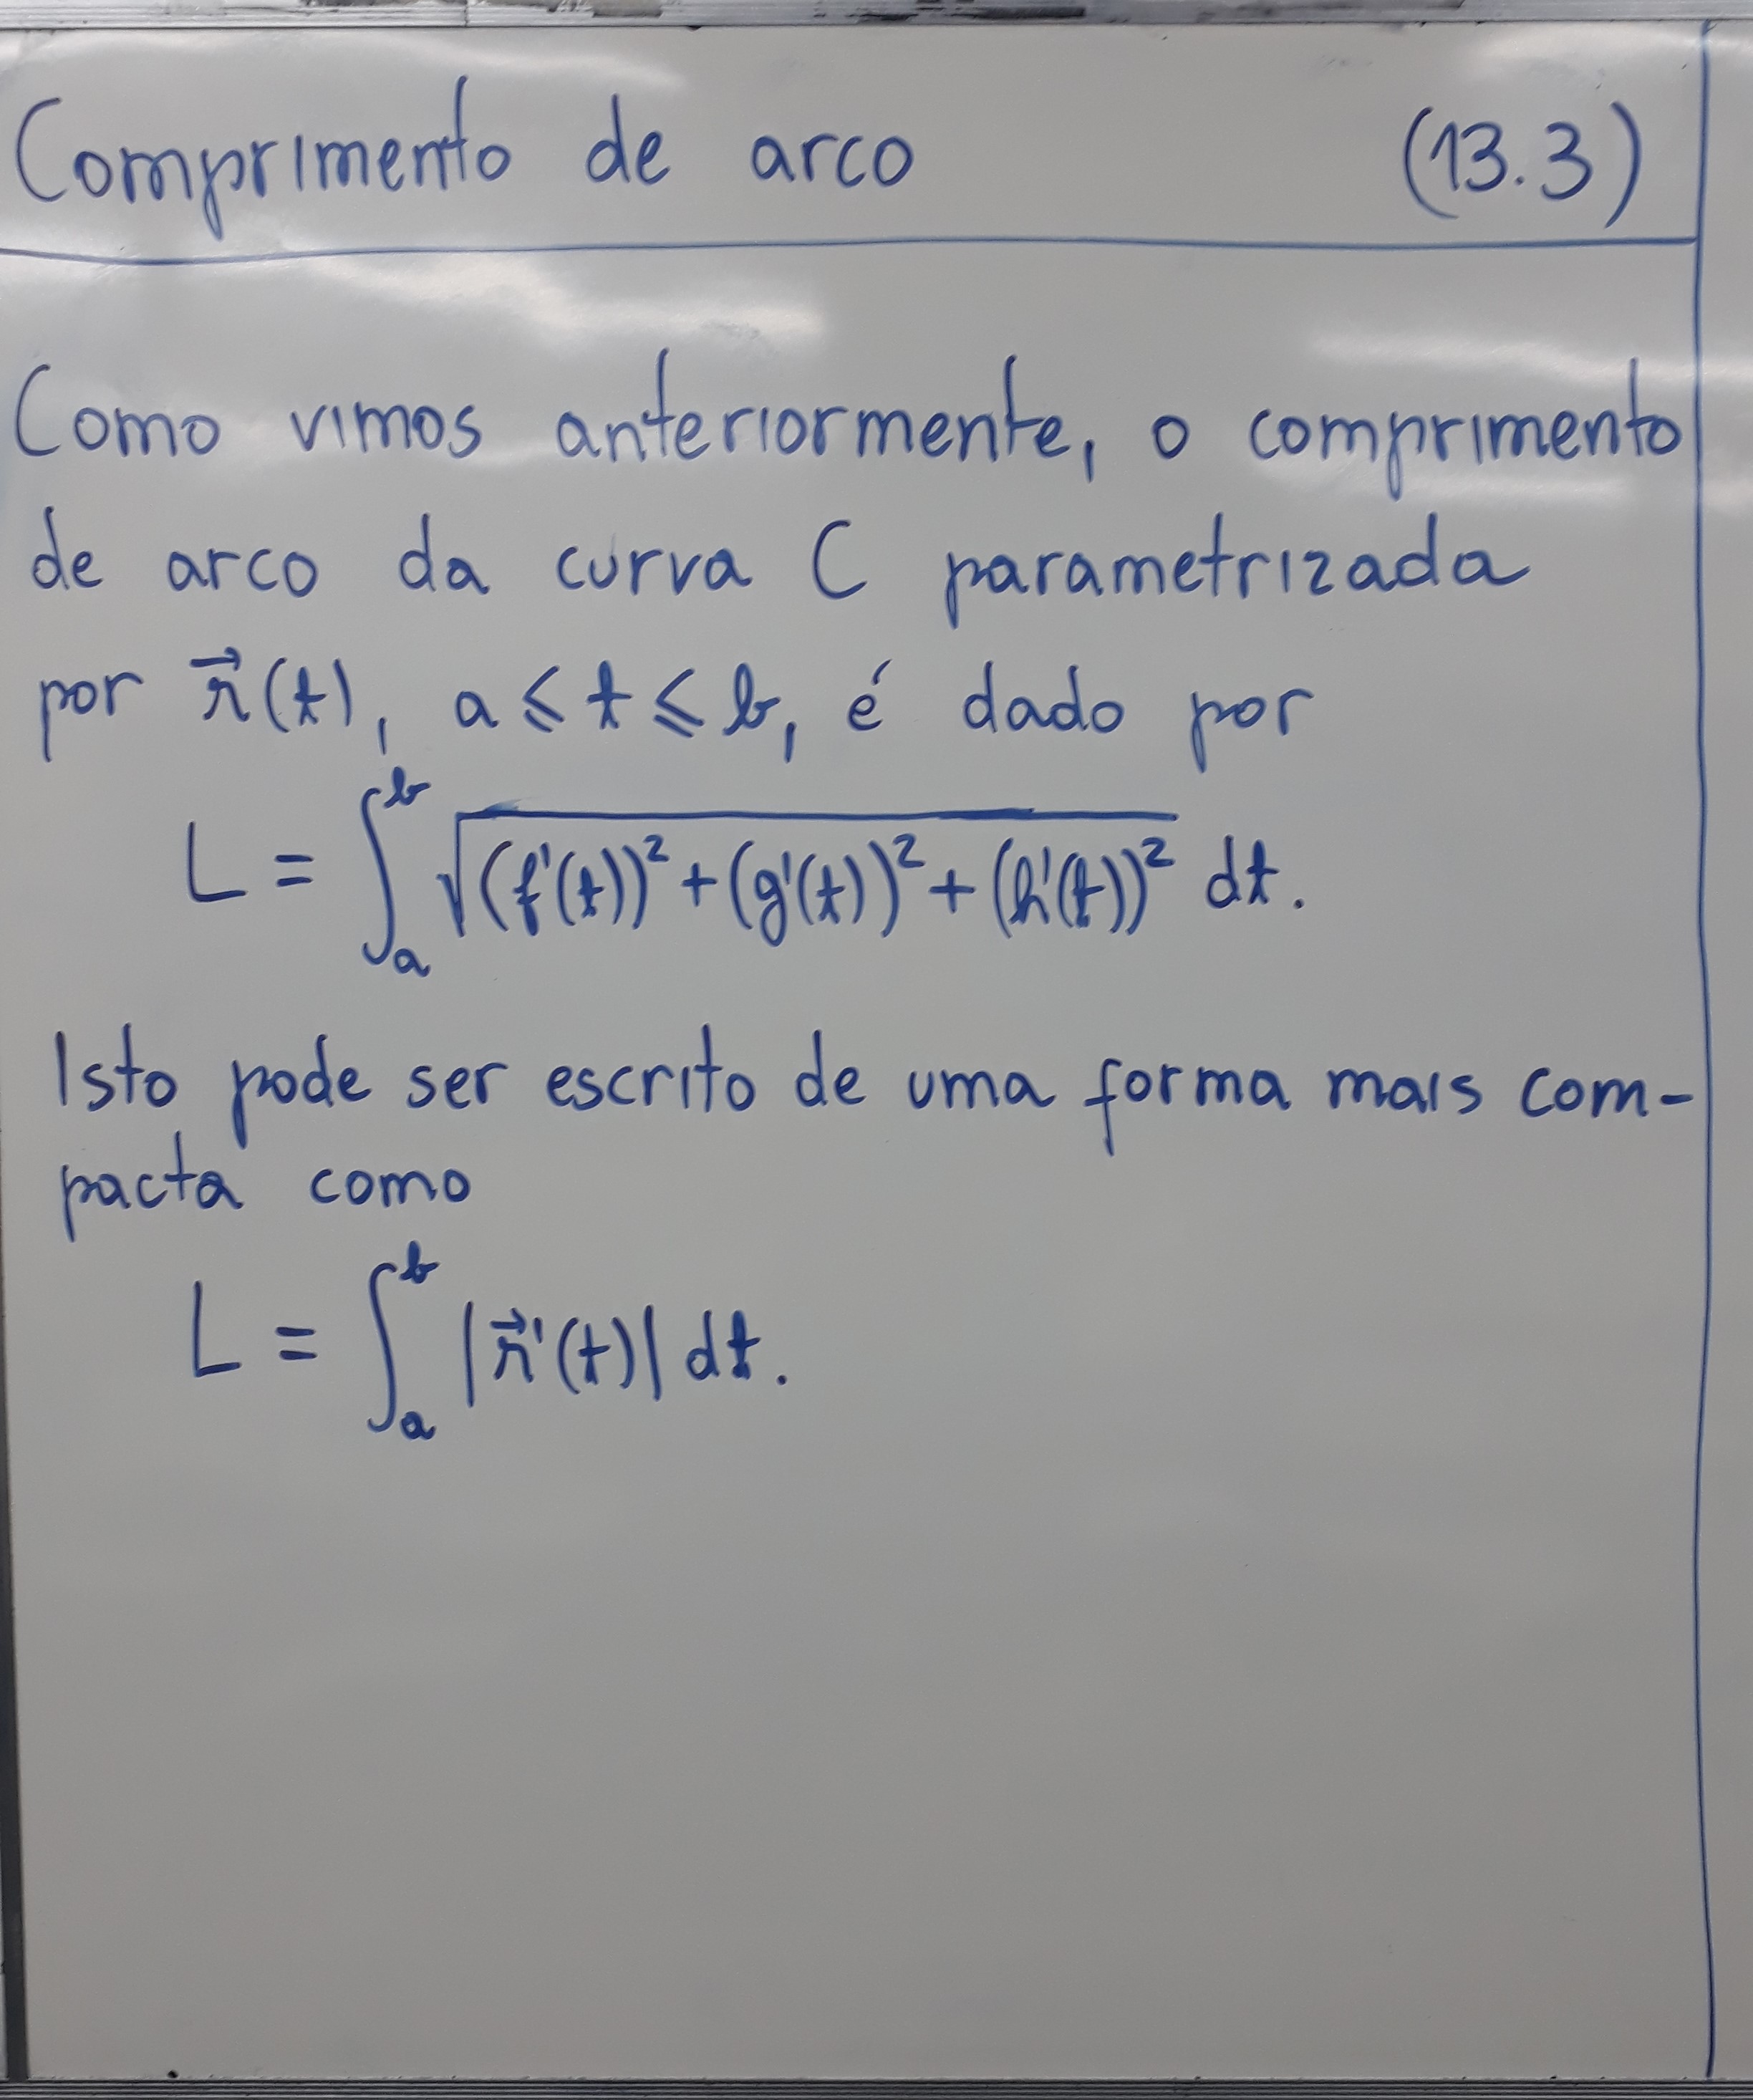 Comprimento de arco (13.3)
Como vimos anteriormente, o comprimento
de arco da curva C parametrizada
por $\vec{r}(t)$, $a \leqslant t \leqslant b$, é dado por
$L = \int_a^b \sqrt{(f'(t))^2 + (g'(t))^2 + (h'(t))^2} \, dt.$
Isto pode ser escrito de uma forma mais com-
pacta como
$L = \int_a^b |\vec{r}'(t)| \, dt.$